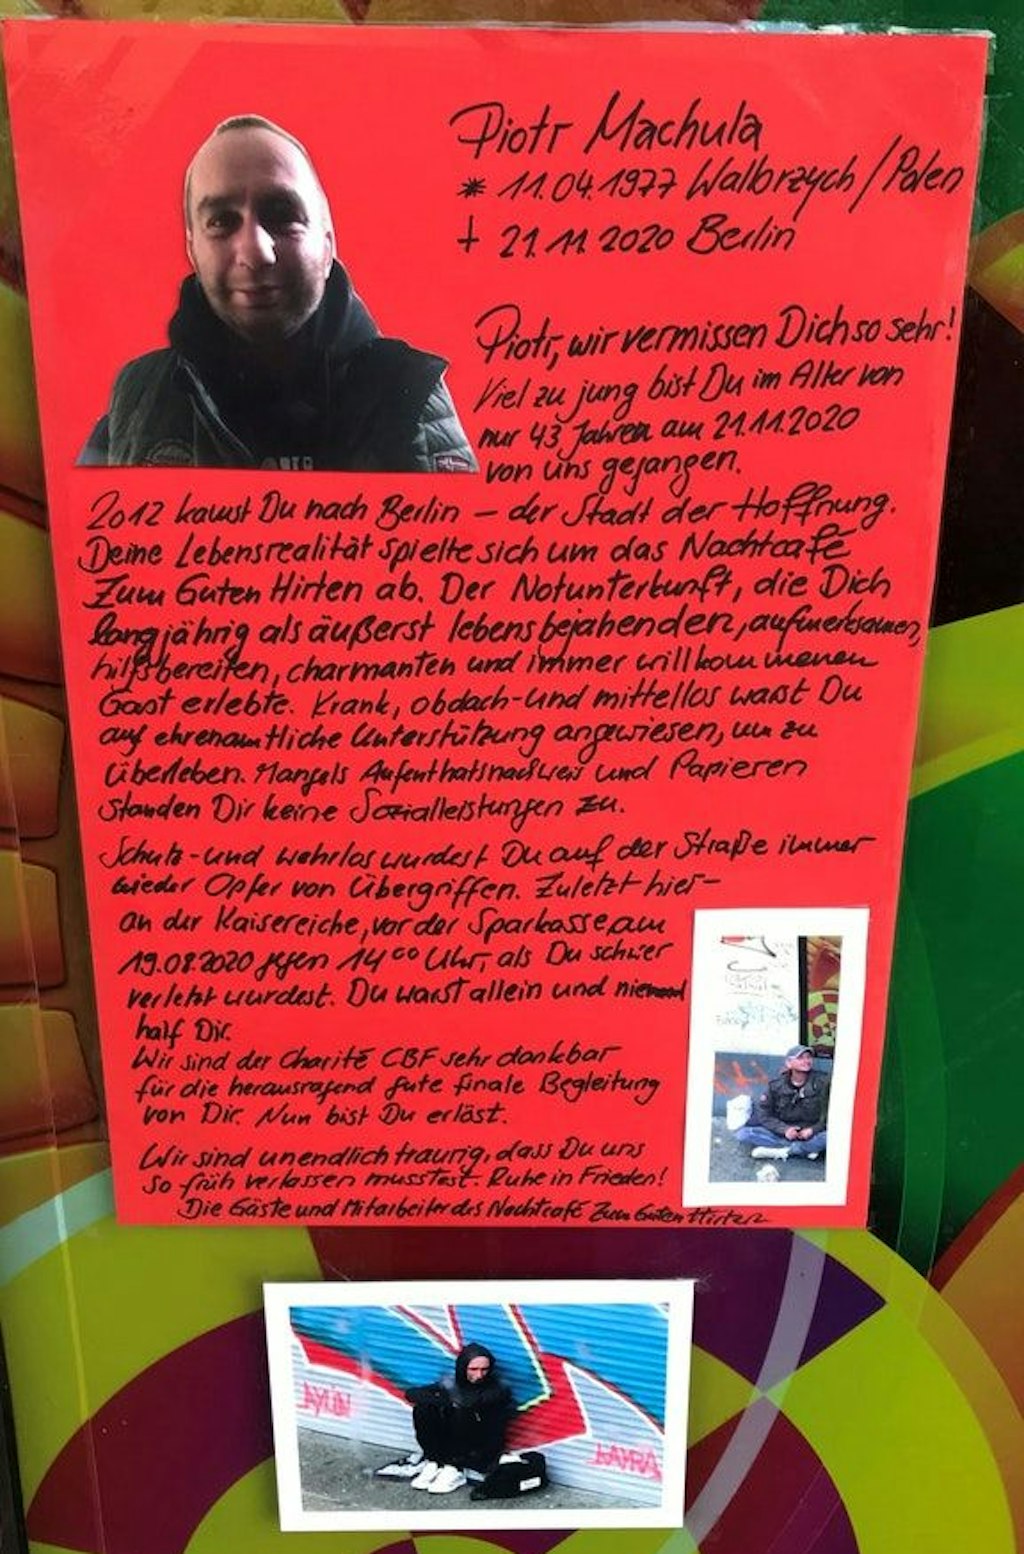 Piotr Machula
* 11.04.1977 Walbrzych / Polen
† 21.11.2020 Berlin
Piotr, wir vermissen Dich so sehr!
Viel zu jung bist Du im Alter von
nur 43 Jahren am 21.11.2020
von uns gegangen.
2012 kamst Du nach Berlin – der Stadt der Hoffnung.
Deine Lebensrealität spielte sich um das Nachtcafé
Zum Guten Hirten ab. Der Notunterkunft, die Dich
langjährig als äußerst lebensbejahenden, aufmerksamen,
hilfsbereiten, charmanten und immer willkommenen
Gast erlebte. Krank, obdach- und mittellos warst Du
auf ehrenamtliche Unterstützung angewiesen, um zu
überleben. Mangels Aufenthaltsnachweis und Papieren
standen Dir keine Sozialleistungen zu.
Schutz- und wehrlos wurdest Du auf der Straße immer
wieder Opfer von Übergriffen. Zuletzt hier –
an der Kaisereiche, vor der Sparkasse am
19.08.2020 gegen 14⁰⁰ Uhr, als Du schwer
verletzt wurdest. Du warst allein und niemand
half Dir.
Wir sind der Charité CBF sehr dankbar
für die herausragend gute finale Begleitung
von Dir. Nun bist Du erlöst.
Wir sind unendlich traurig, dass Du uns
so früh verlassen musstest. Ruhe in Frieden!
Die Gäste und Mitarbeiter des Nachtcafé Zum Guten Hirten